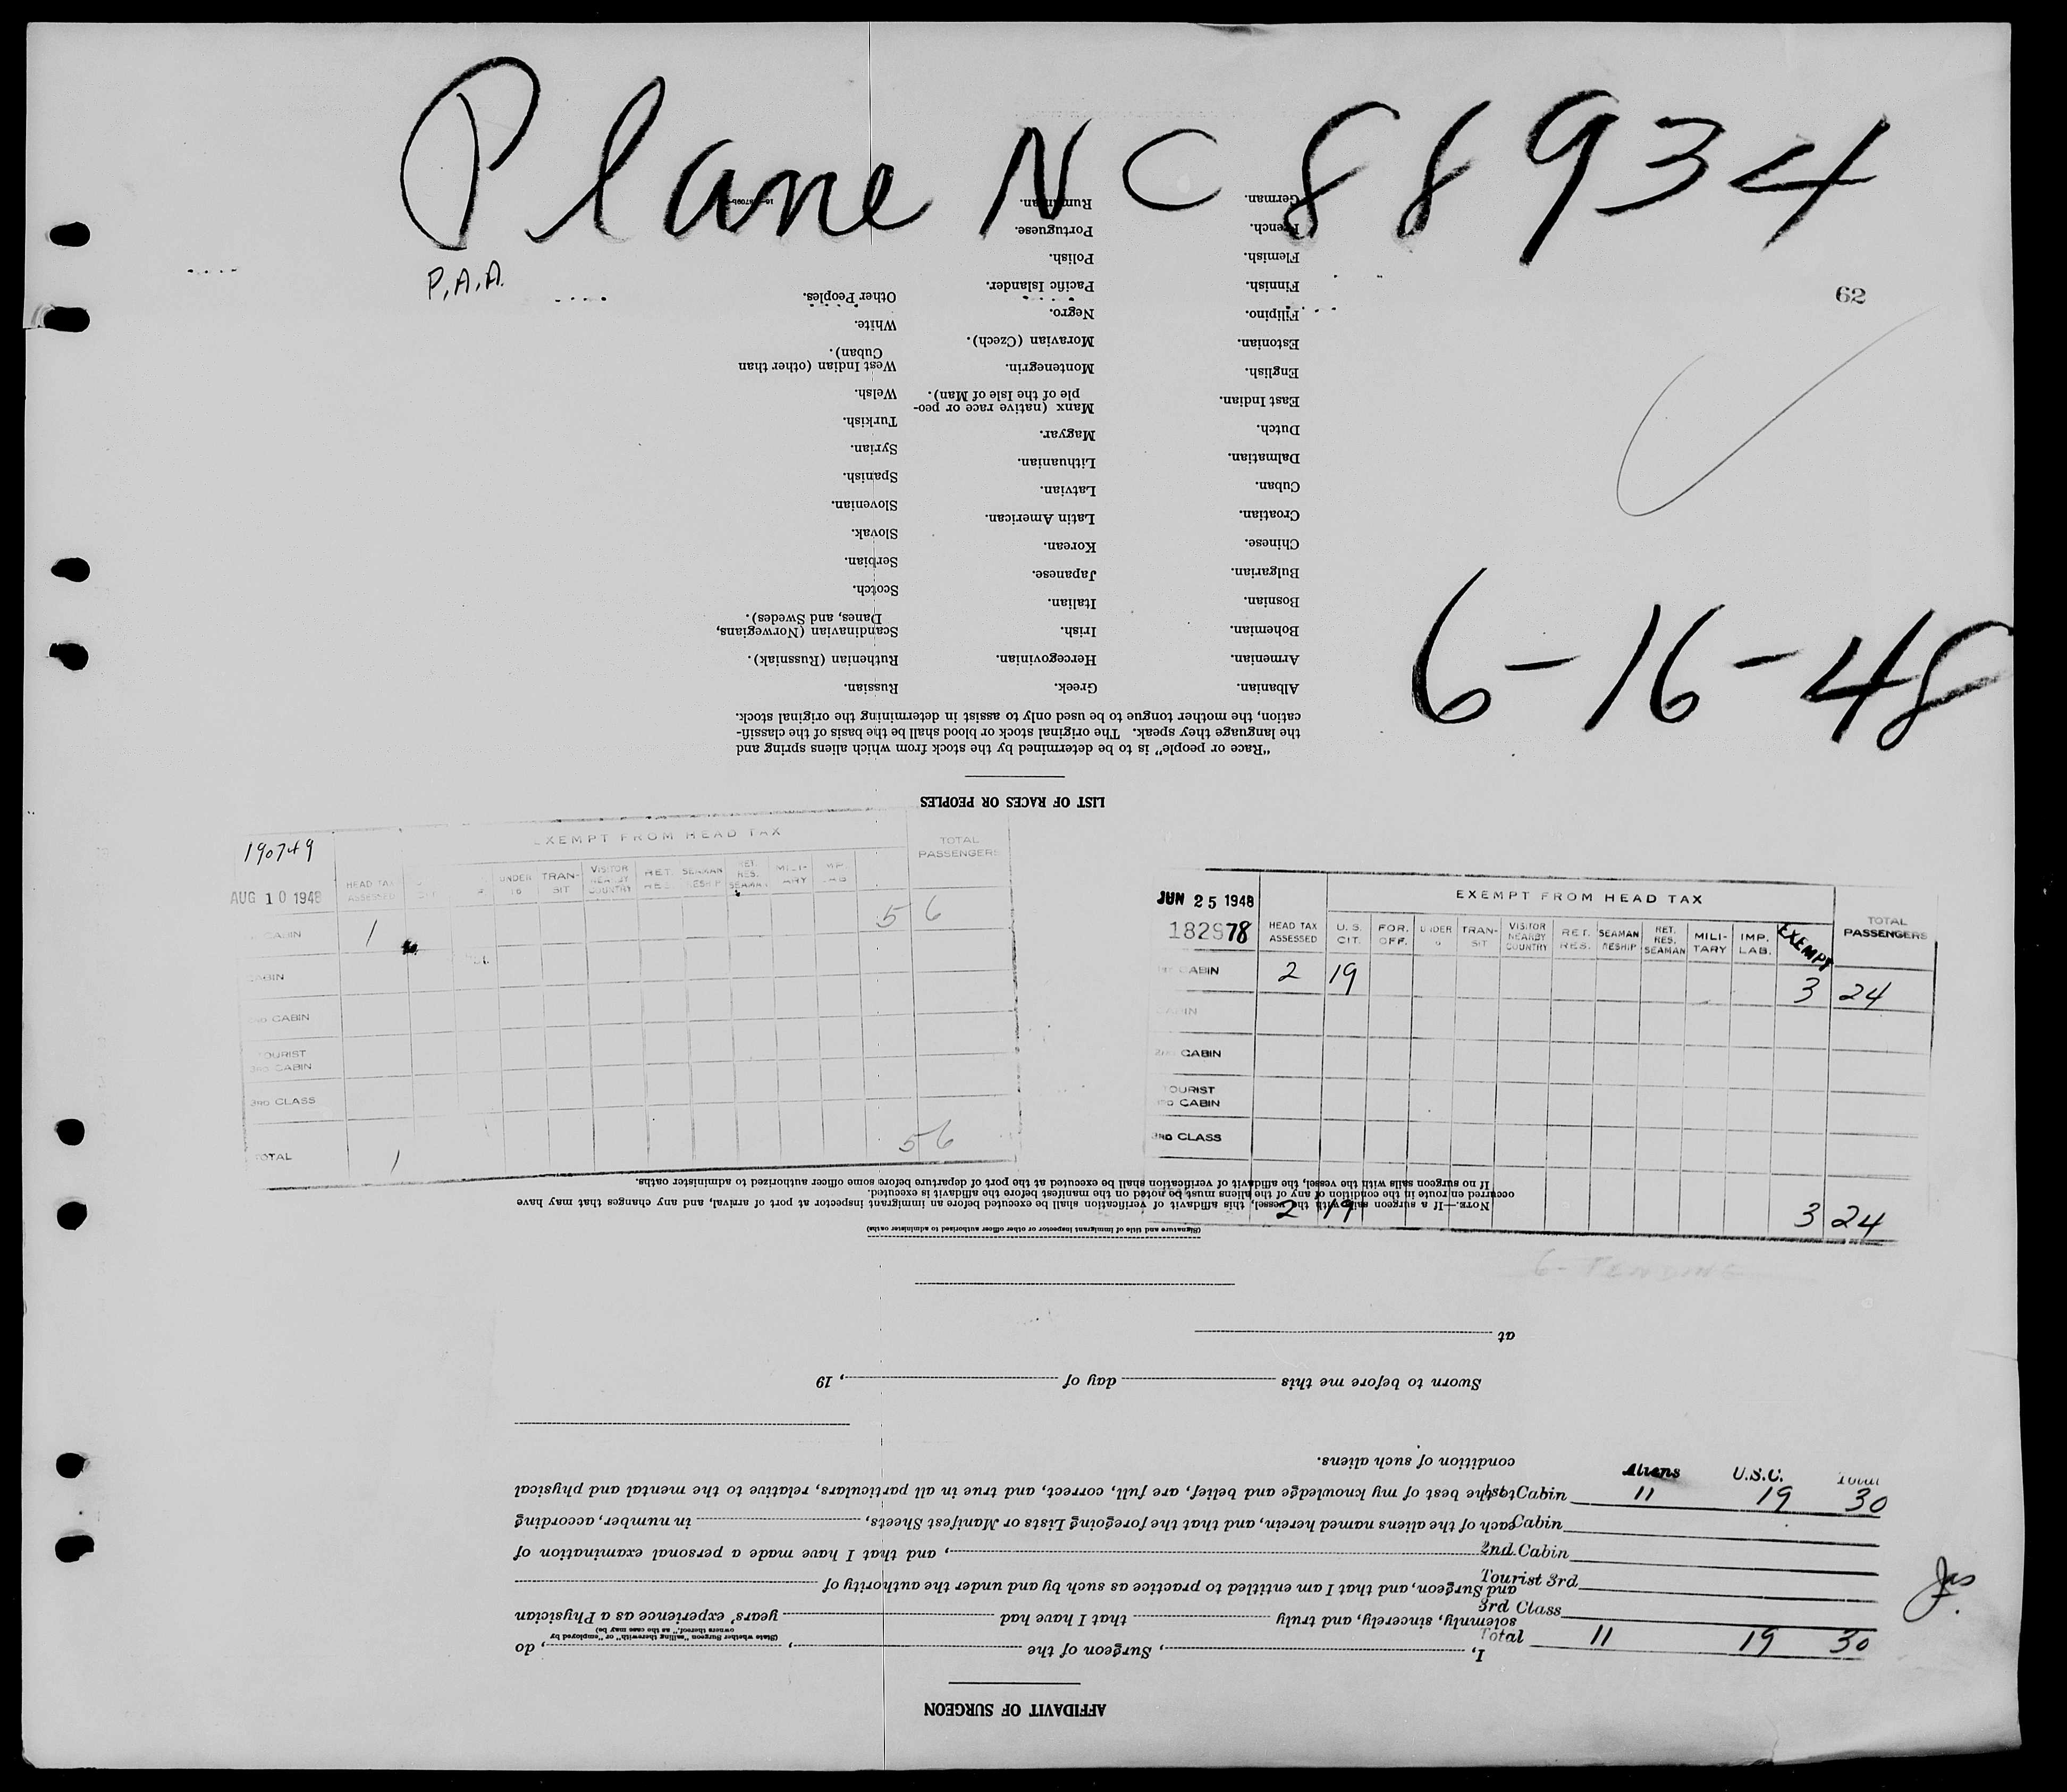 Plane NC 88934
P.A.A.
62
6-16-48
190749
AUG 10 1948
EXEMPT FROM HEAD TAX
TOTAL PASSENGERS
HEAD TAX ASSESSED
UNDER 16
TRAN-SIT
VISITOR NEARBY COUNTRY
RET. RES.
SEAMAN RESHIP
RET. RES. SEAMAN
MILI-TARY
IMP. LAB
CABIN 1 5 6
CABIN
2ND CABIN
TOURIST
3RD CABIN
3RD CLASS
TOTAL 1 5 6
JUN 25 1948
182978
EXEMPT FROM HEAD TAX
TOTAL PASSENGERS
HEAD TAX ASSESSED
U.S. CIT.
FOR. OFF.
UNDER
TRAN-SIT
VISITOR NEARBY COUNTRY
RET. RES.
SEAMAN RESHIP
RET. RES. SEAMAN
MILI-TARY
IMP. LAB.
EXEMPT
1ST CABIN 2 19 3 24
CABIN
2ND CABIN
TOURIST
3RD CABIN
3RD CLASS
2 19 3 24
6- PENDING
Aliens U.S.C. Total
1st Cabin 11 19 30
Cabin
2nd Cabin
Tourist 3rd
3rd Class
Total 11 19 30
AFFIDAVIT OF SURGEON
I, , Surgeon of the , , do
(State whether Surgeon "sailing therewith" or "employed by
owners thereof," as the case may be)
solemnly, sincerely, and truly that I have had years' experience as a Physician
and Surgeon, and that I am entitled to practice as such by and under the authority of
, and that I have made a personal examination of
each of the aliens named herein, and that the foregoing Lists or Manifest Sheets, in number, according
to the best of my knowledge and belief, are full, correct, and true in all particulars, relative to the mental and physical
condition of such aliens.
Sworn to before me this day of , 19
at
(Signature and title of immigrant inspector or other officer authorized to administer oaths)
NOTE.—If a surgeon sails with the vessel, this affidavit of verification shall be executed before an immigrant inspector at port of arrival, and any changes that may have
occurred en route in the condition of any of the aliens must be noted on the manifest before the affidavit is executed.
If no surgeon sails with the vessel, the affidavit of verification shall be executed at the port of departure before some officer authorized to administer oaths.
LIST OF RACES OR PEOPLES
"Race or people" is to be determined by the stock from which aliens spring and
the language they speak. The original stock or blood shall be the basis of the classifi-
cation, the mother tongue to be used only to assist in determining the original stock.
Albanian.
Armenian.
Bohemian.
Bosnian.
Bulgarian.
Chinese.
Croatian.
Cuban.
Dalmatian.
Dutch.
East Indian.
English.
Estonian.
Filipino.
Finnish.
Flemish.
French.
German.
Greek.
Hercegovinian.
Irish.
Italian.
Japanese.
Korean.
Latin American.
Latvian.
Lithuanian.
Magyar.
Manx (native race or peo-
ple of the Isle of Man).
Montenegrin.
Moravian (Czech).
Negro.
Pacific Islander.
Polish.
Portuguese.
Rumanian.
Russian.
Ruthenian (Russniak).
Scandinavian (Norwegians,
Danes, and Swedes).
Scotch.
Serbian.
Slovak.
Slovenian.
Spanish.
Syrian.
Turkish.
Welsh.
West Indian (other than
Cuban).
White.
Other Peoples.